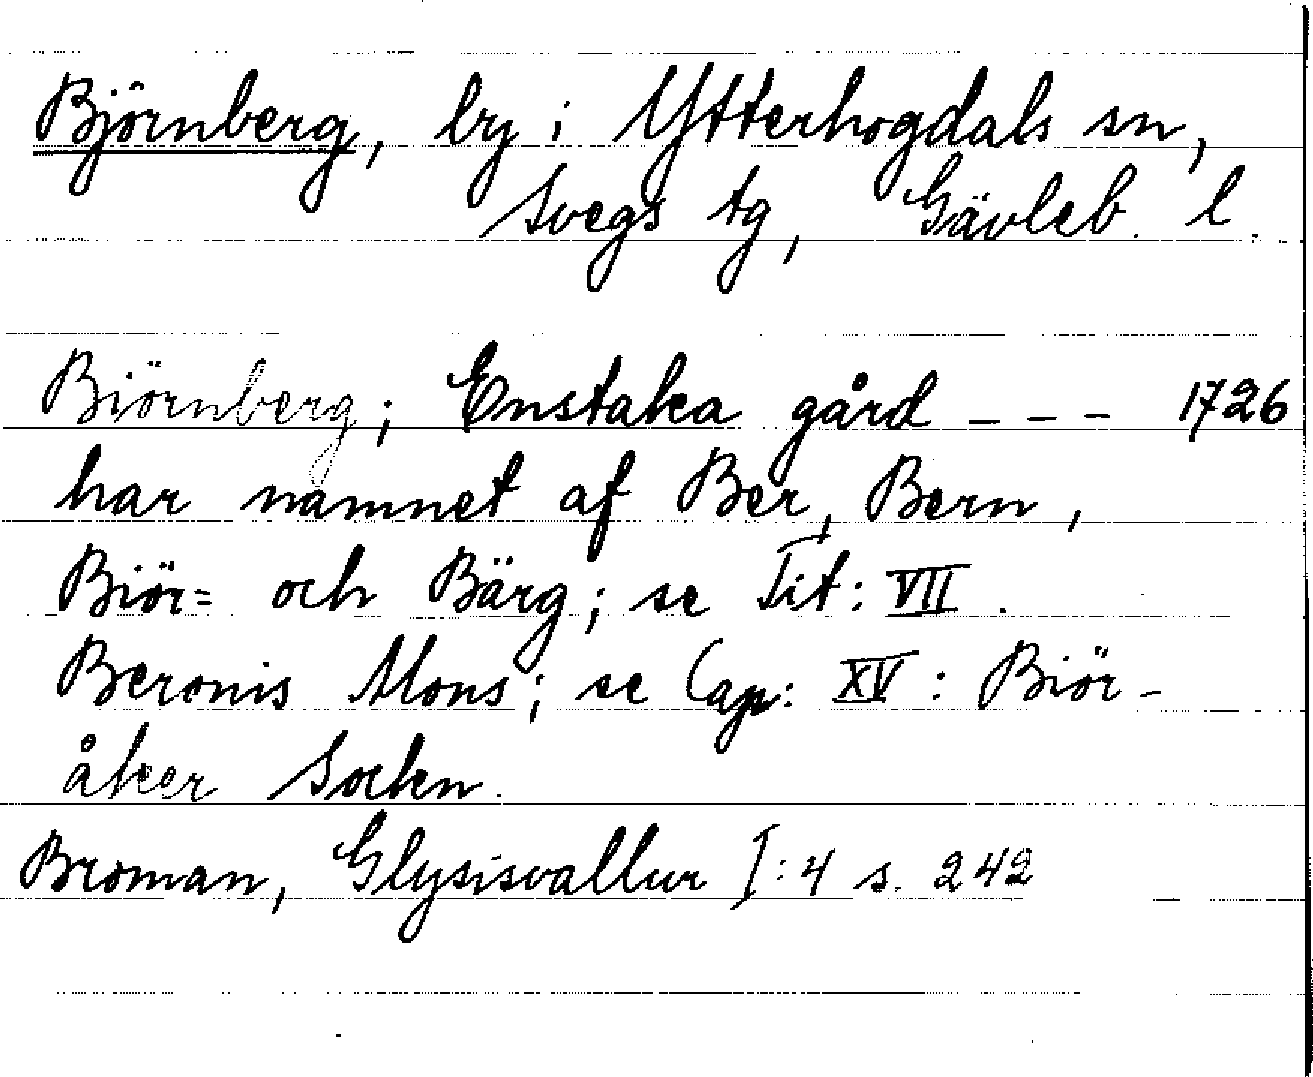 Björnberg, by i Ytterhogdals sn,
Svegs tg, Gävleb. l.
Biörnberg; Enstaka gård - - - 1726
har namnet af Ber, Bern,
Biör= och Bärg; se Tit: VII.
Beronis Mons; se Cap: XV: Biör-
åker Sockn.
Broman, Glysisvallur I:4 s. 242